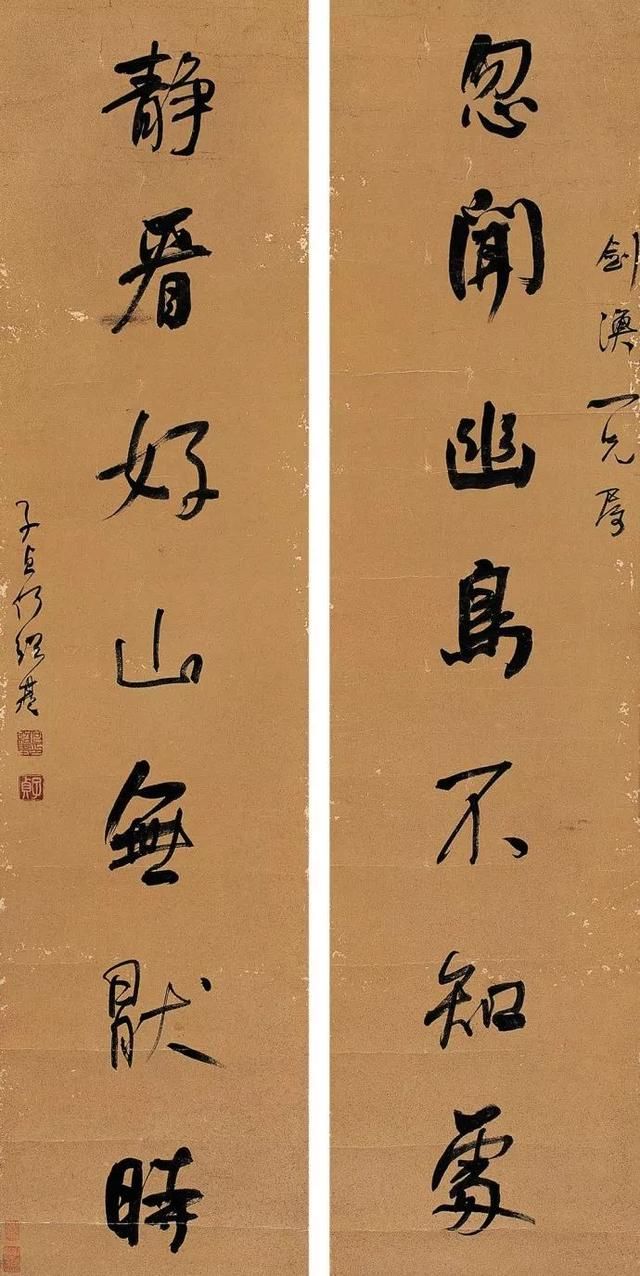 劍一兄屬
忽聞幽鳥不知處
靜看好山無猒時
子貞何紹基
子貞